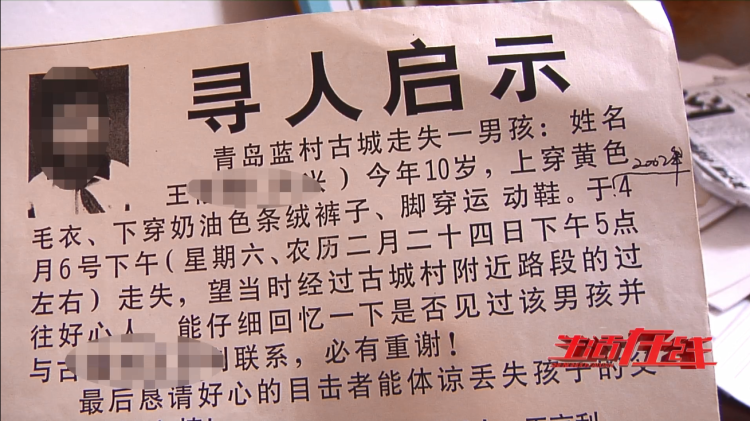 寻人启示
青岛蓝村古城走失一男孩：姓名
王 米）今年10岁，上穿黄色
2002年
毛衣、下穿奶油色条绒裤子、脚穿运 动鞋。于4
月6号下午(星期六、农历二月二十四日下午5点
左右）走失，望当时经过古城村附近路段的过
往好心人 能仔细回忆一下是否见过该男孩并
与古 联系，必有重谢！
最后恳请好心的目击者能体谅丢失孩子的父
生活在线